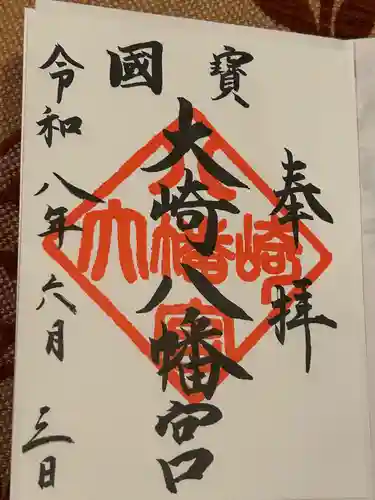 國寶
奉拝
大崎八幡宮
令和八年六月三日
大崎八幡宮